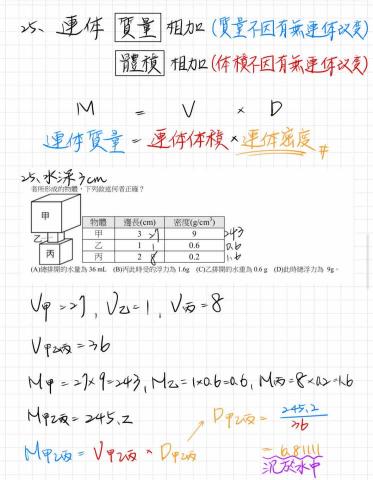 25、連体 質量 相加(質量不因有無連体改变)
體積 相加(体積不因有無連体改变)
M = V × D
連体質量 = 連体体積 × 連体密度 #
25、水深3cm
者所形成的物體，下列敘述何者正確？
甲
乙
丙
物體 邊長(cm) 密度(g/cm³)
甲 3 27 9 243
乙 1 1 0.6 0.6
丙 2 8 0.2 1.6
(A)總排開的水量為 36 mL (B)丙此時受的浮力為 1.6g (C)乙排開的水重為 0.6 g (D)此時總浮力為 9g。
V甲=27, V乙=1, V丙=8
V甲乙丙=36
M甲=27×9=243, M乙=1×0.6=0.6, M丙=8×0.2=1.6
M甲乙丙=245.2
D甲乙丙= 245.2/36
M甲乙丙=V甲乙丙×D甲乙丙
=6.81111
沉於水中